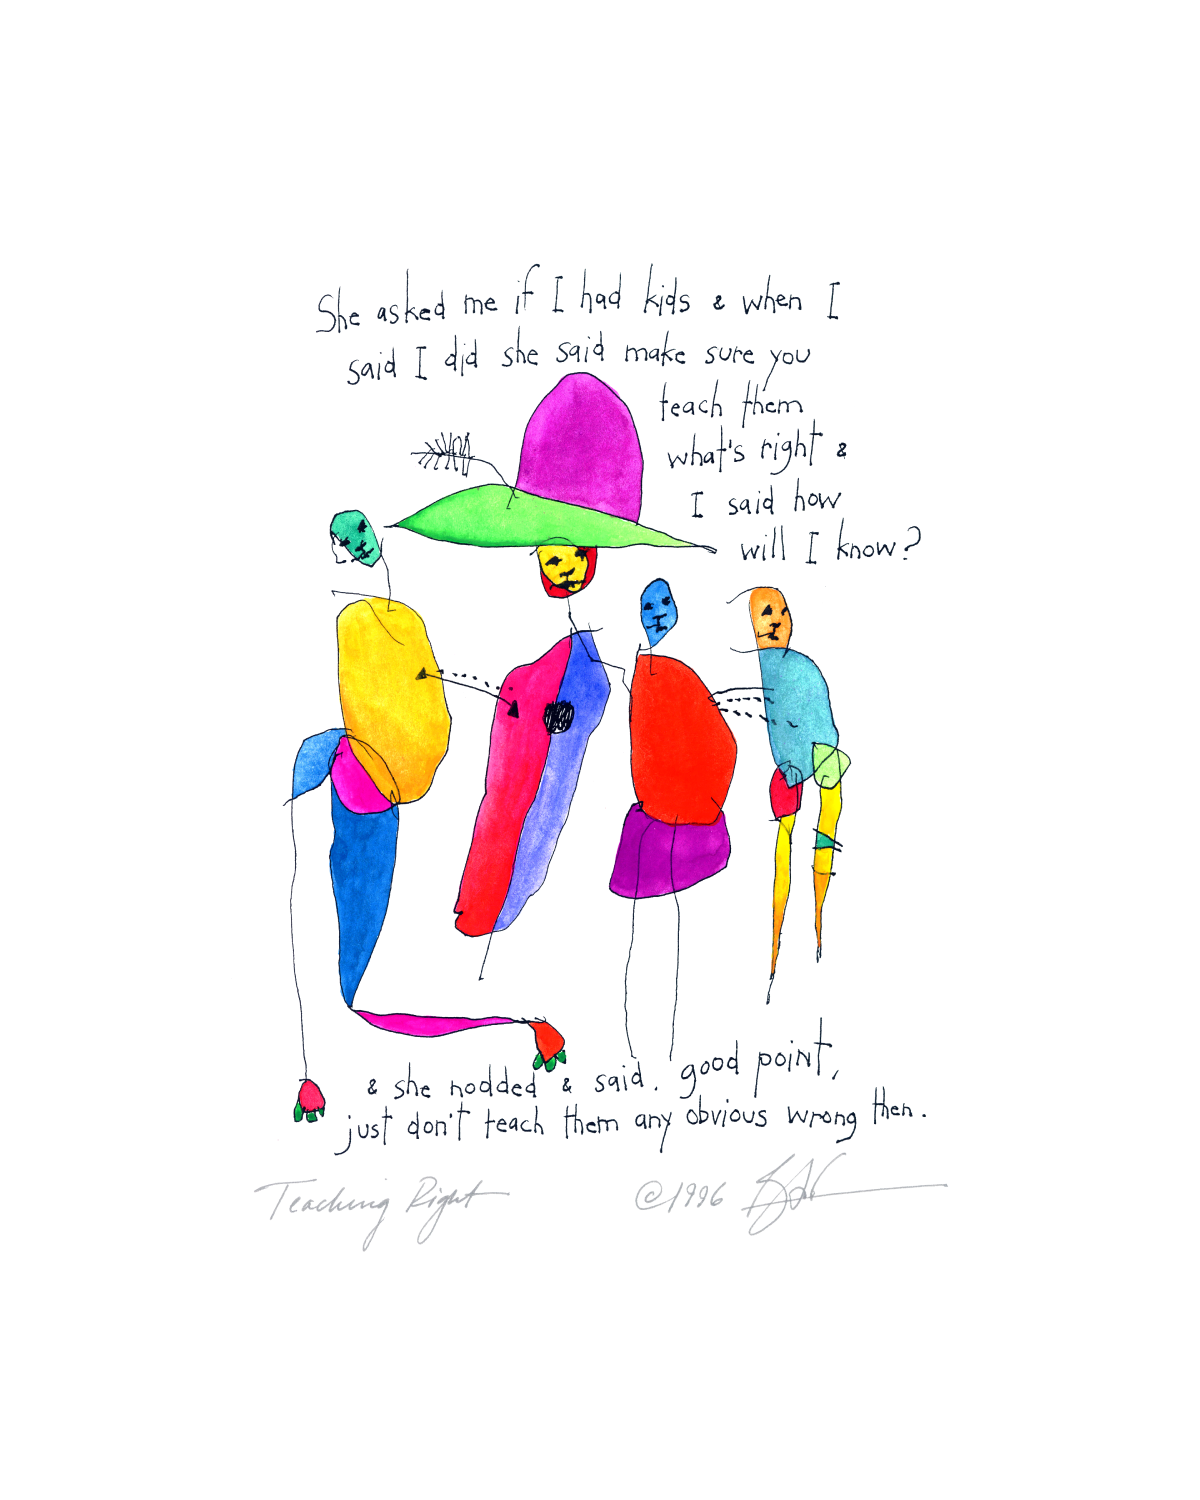 She asked me if I had kids & when I
said I did she said make sure you
teach them
what's right &
I said how
will I know?
& she nodded & said. good point,
just don't teach them any obvious wrong then.
Teaching Right
©1996